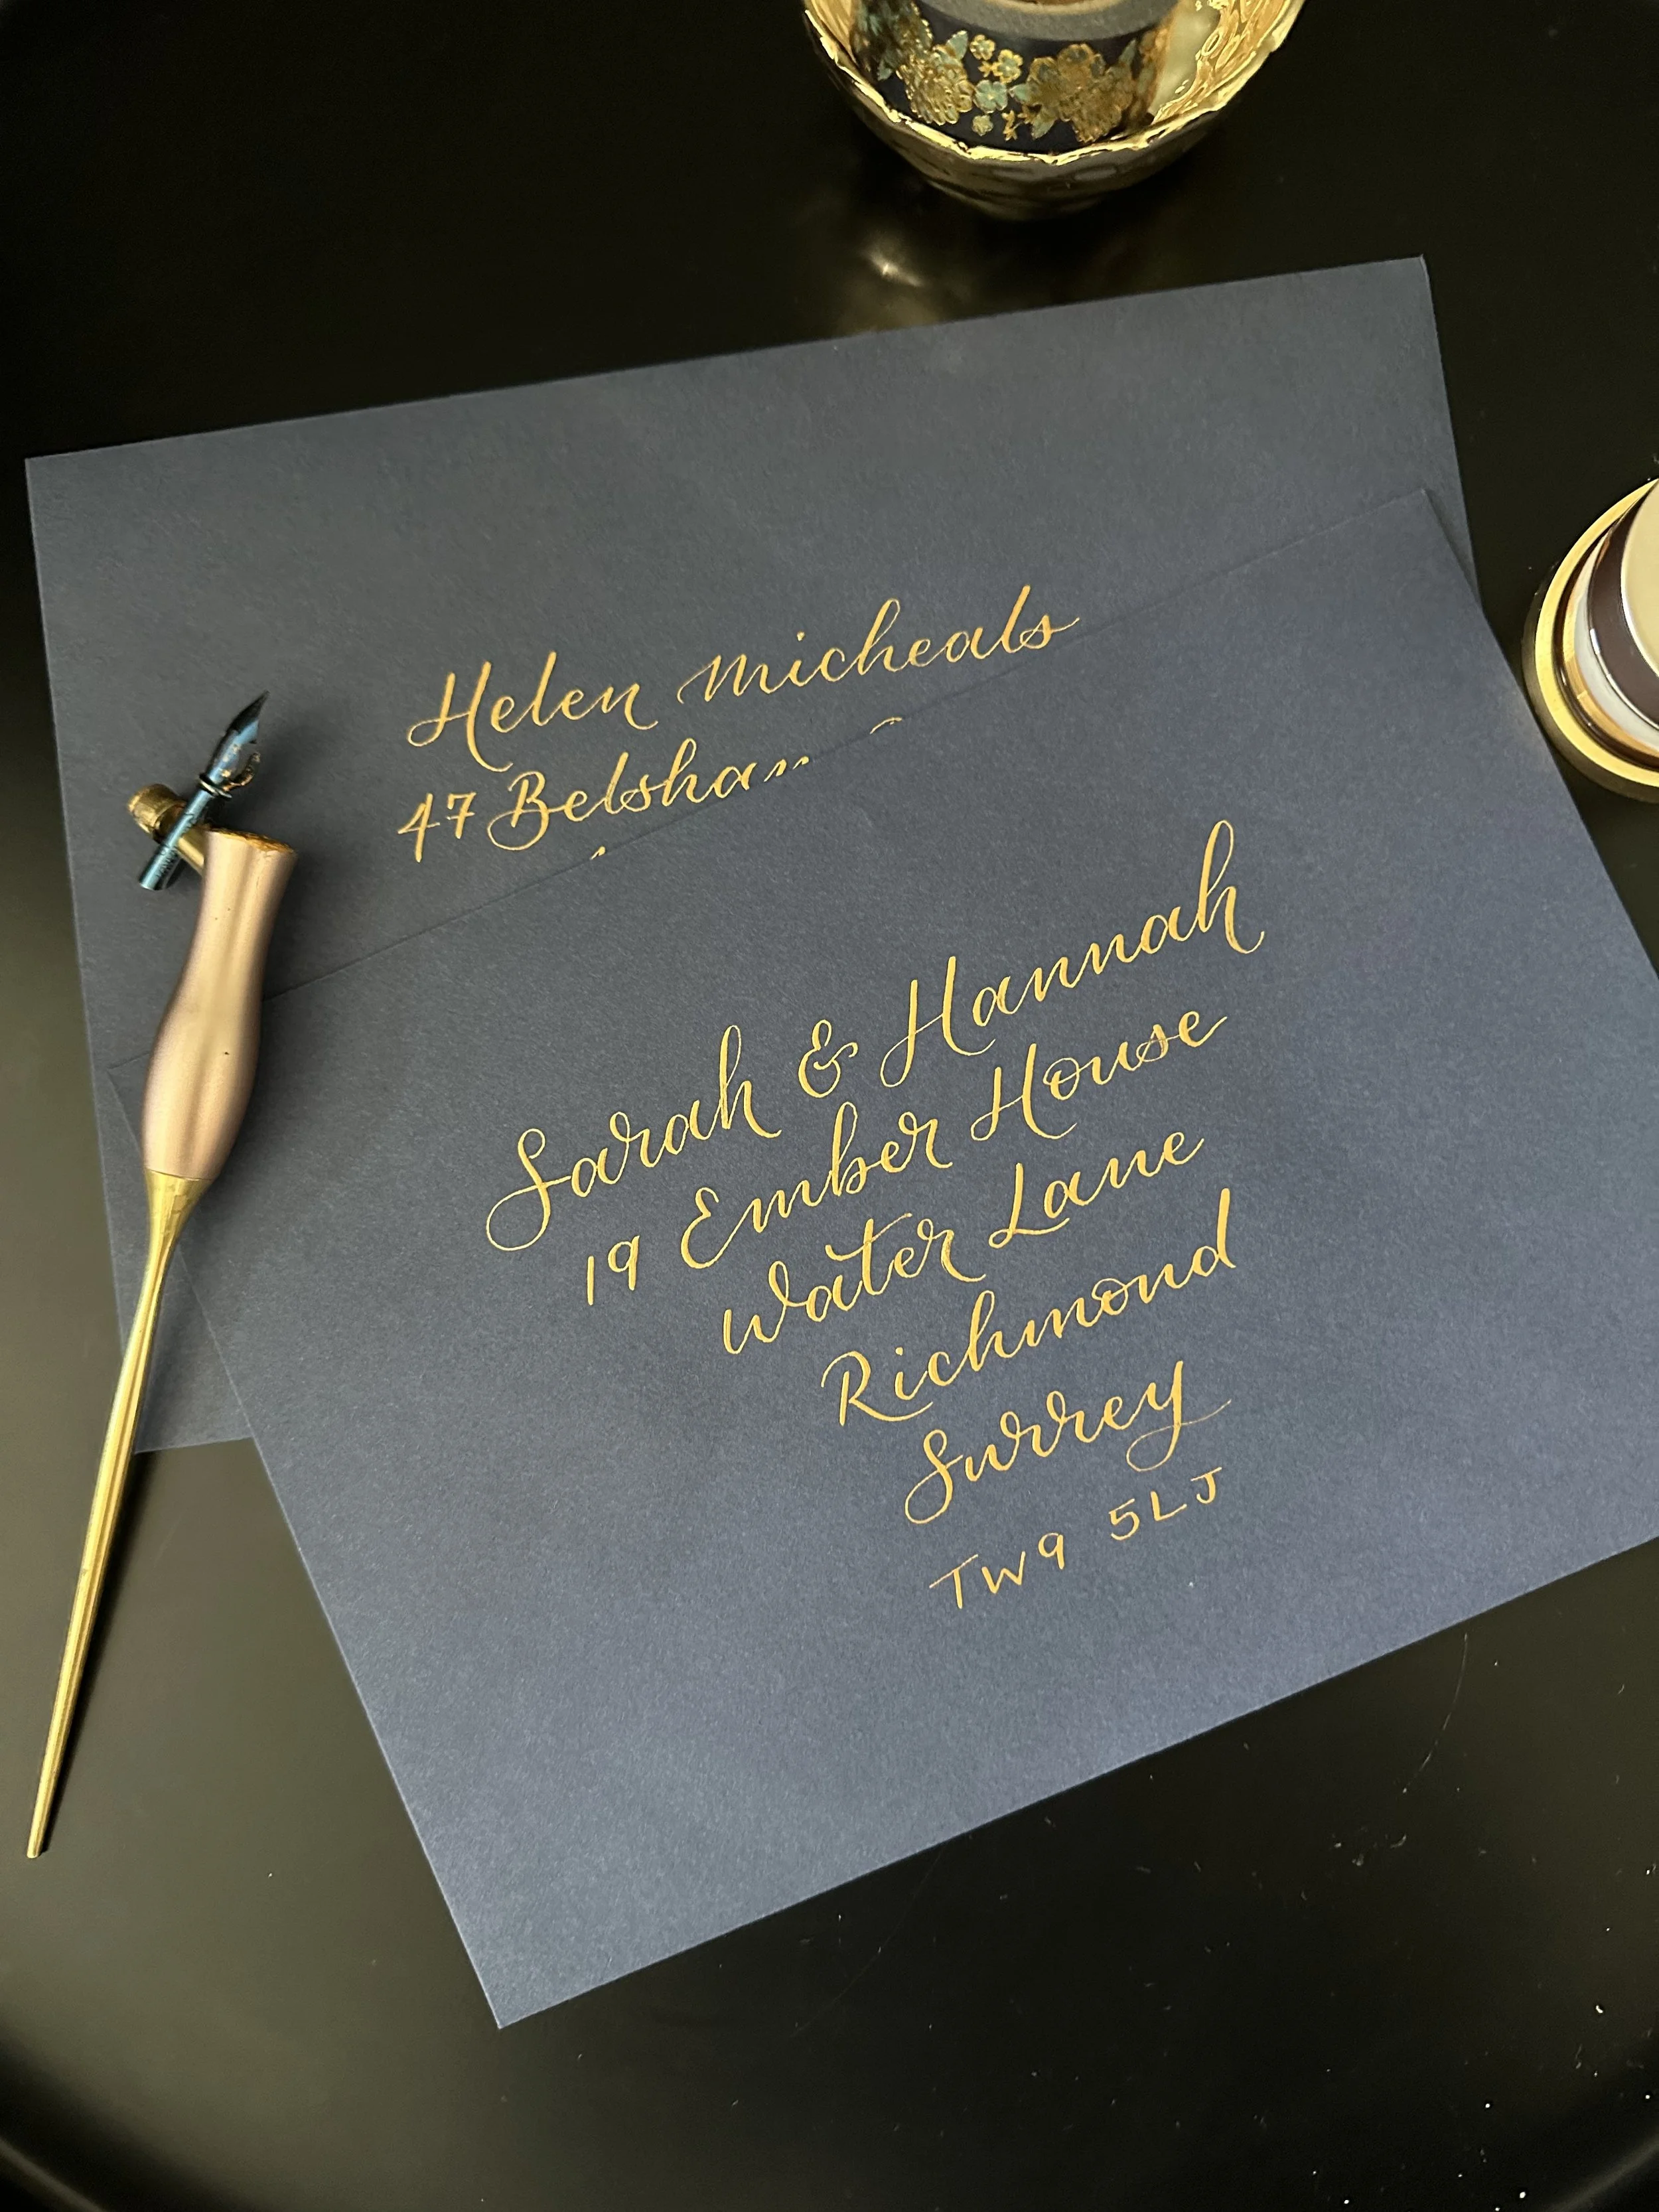 Helen Micheals
47
Sarah & Hannah
19 Ember House
Water Lane
Richmond
Surrey
TW9 5LJ